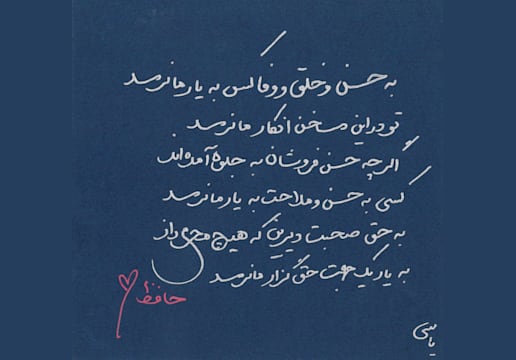 به حسن و خلق و وفا کس به یار ما نرسد
تو در این سخن انکار ما نرسد
اگرچه حسن فروشان به جلوه آمده‌اند
کسی به حسن و ملاحت به یار ما نرسد
به حق صحبت دیرین که هیچ محرم راز
به یار یک جهت حق گزار ما نرسد
حافظ